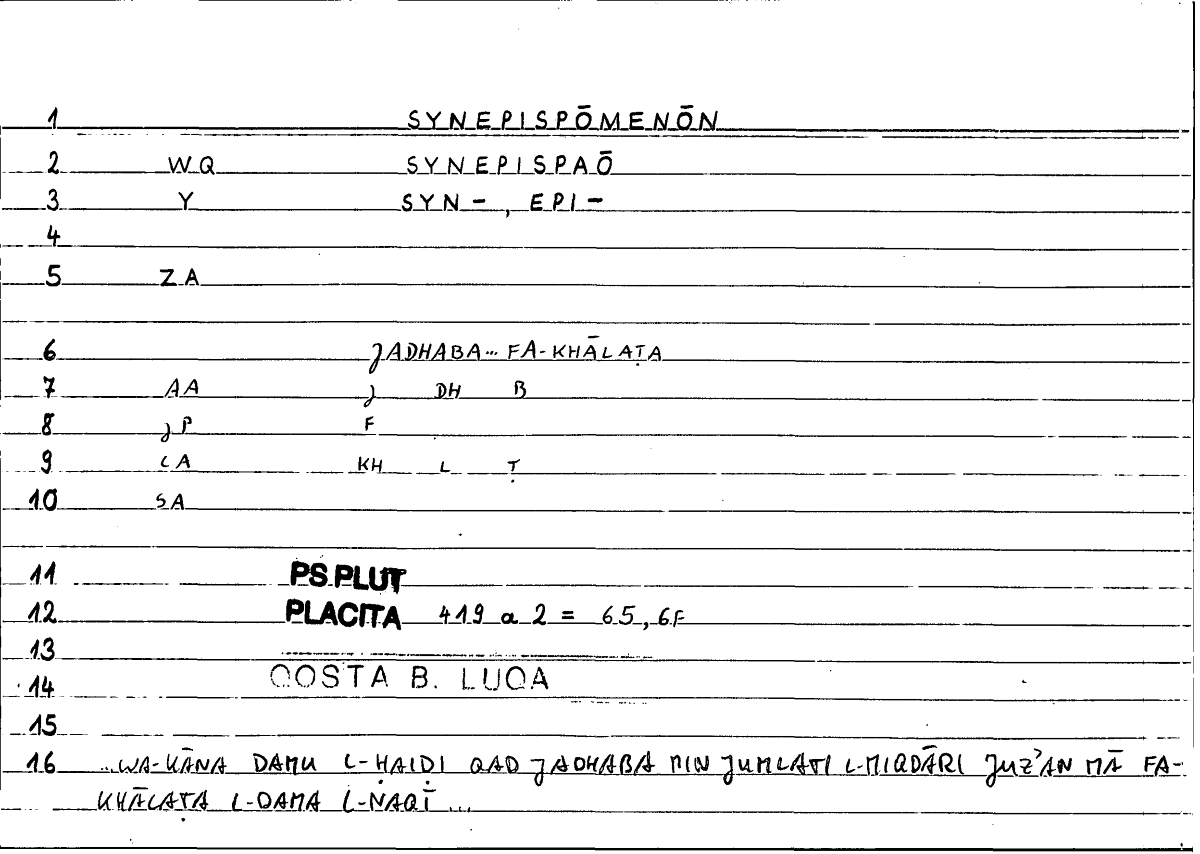 1 SYNEPISPŌMENŌN
2 WQ SYNEPISPAŌ
3 Y SYN-, EPI-
4
5 ZA
6 JADHABA... FA-KHĀLAṬA
7 AA J DH B
8 JP F
9 LA KH L Ṭ
10 SA
11 PS.PLUT
12 PLACITA 419 a 2 = 65,6F
13
14 QOSTA B. LUQA
15
16 ...WA-KĀNA DAMU L-ḤAIḌI QAD JADHABA MIN JUMLATI L-MIQDĀRI JUZ'AN MĀ FA-
KHĀLAṬA L-DAMA L-NAQĪ...